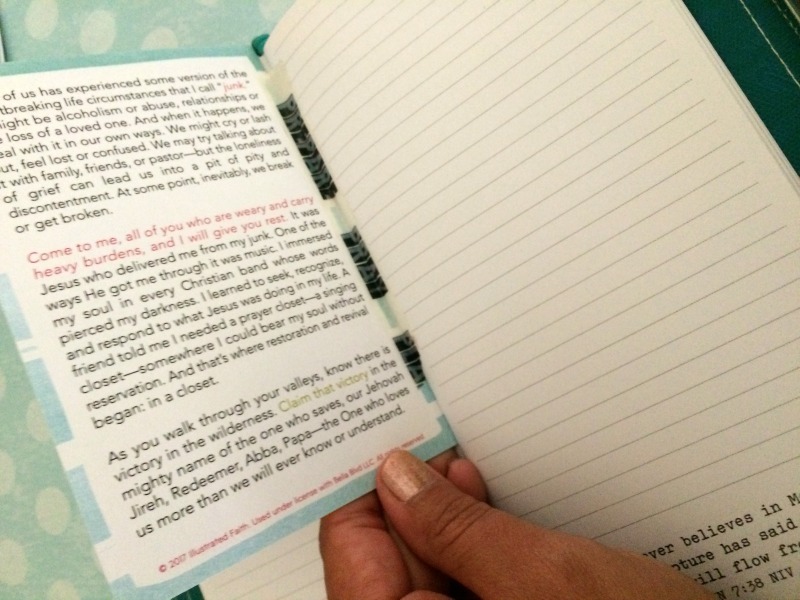 of us has experienced some version of the
tbreaking life circumstances that I call "junk."
ight be alcoholism or abuse, relationships or
loss of a loved one. And when it happens, we
eal with it in our own ways. We might cry or lash
ut, feel lost or confused. We may try talking about
t with family, friends, or pastor—but the loneliness
of grief can lead us into a pit of pity and
discontentment. At some point, inevitably, we break
or get broken.
Come to me, all of you who are weary and carry
heavy burdens, and I will give you rest. It was
Jesus who delivered me from my junk. One of the
ways He got me through it was music. I immersed
my soul in every Christian band whose words
pierced my darkness. I learned to seek, recognize,
and respond to what Jesus was doing in my life. A
friend told me I needed a prayer closet—a singing
closet—somewhere I could bear my soul without
reservation. And that's where restoration and revival
began: in a closet.
As you walk through your valleys, know there is
victory in the wilderness. Claim that victory in the
mighty name of the one who saves, our Jehovah
Jireh, Redeemer, Abba, Papa—the One who loves
us more than we will ever know or understand.
© 2017 Illustrated Faith. Used under license with Bella Blvd LLC. All rights reserved
ver believes in M
pture has said
ill flow fr
N 7:38 NIV